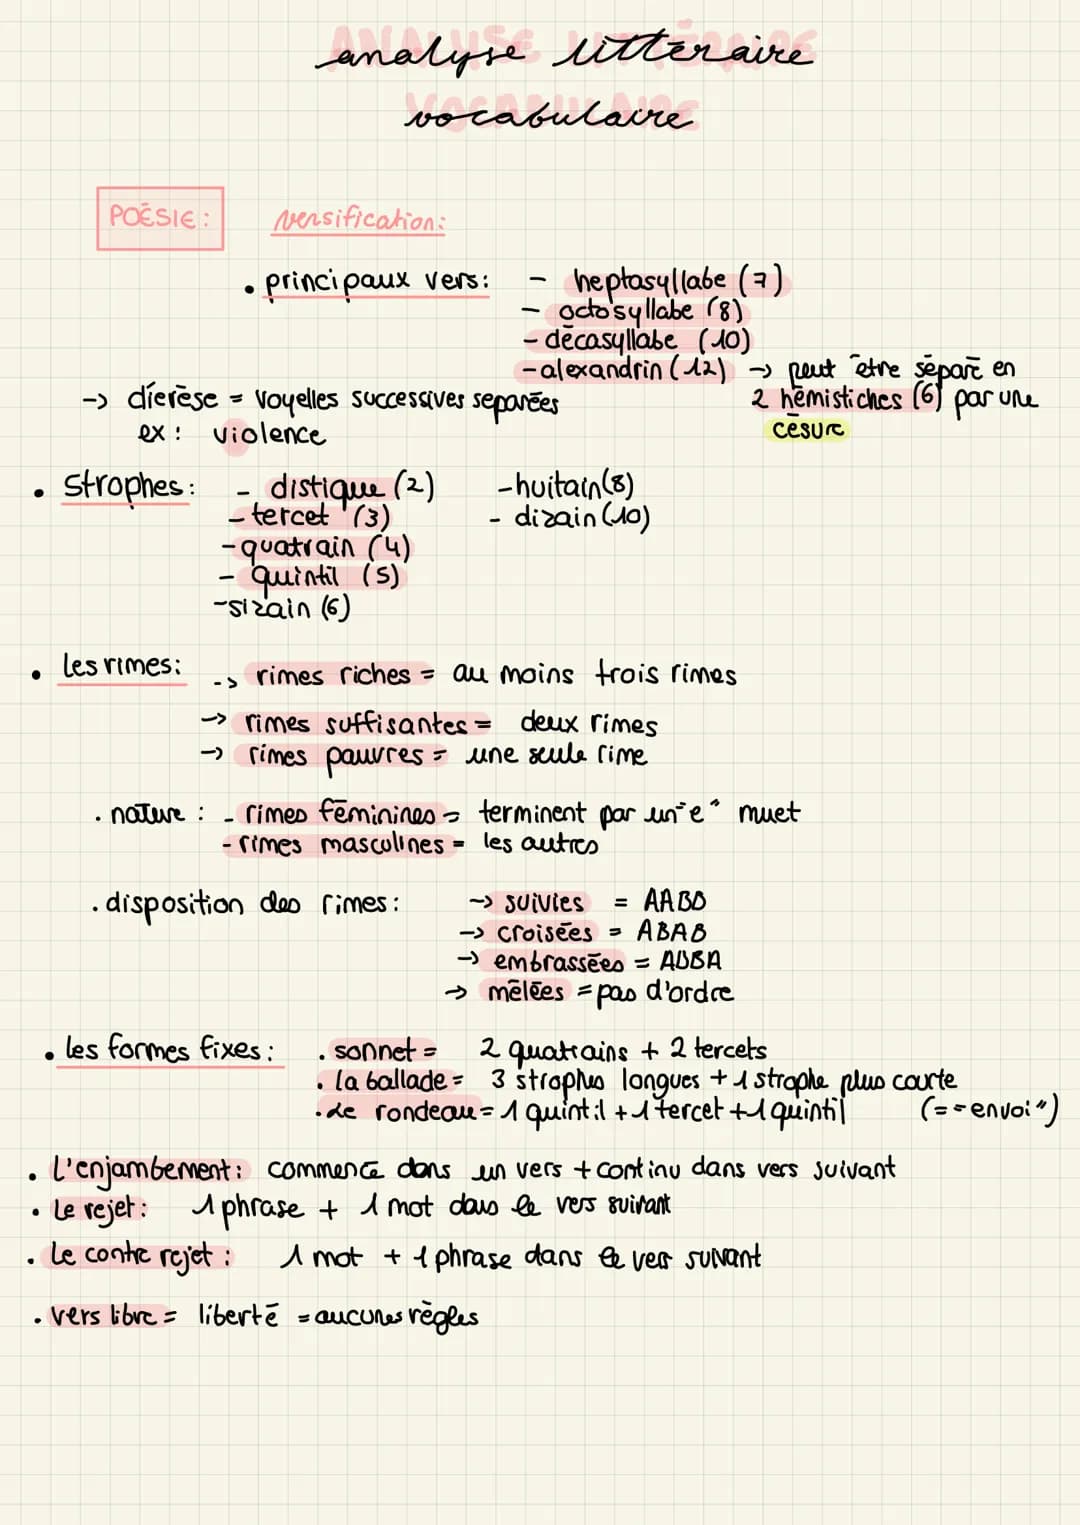 analyse littéraire
vocabulaire
POÉSIE : versification:
• principaux vers: - heptasyllabe (7)
- octosyllabe (8)
- décasyllabe (10)
- alexandrin (12) → peut être séparé en
2 hémistiches (6) par une
césure
-> diérèse = voyelles successives séparées
ex : violence
• Strophes: - distique (2) - huitain (8)
- tercet (3) - dizain (10)
- quatrain (4)
- quintil (5)
- sizain (6)
• Les rimes: -> rimes riches = au moins trois rimes
-> rimes suffisantes = deux rimes
-> rimes pauvres = une seule rime
. nature : - rimes féminines = terminent par un "e" muet
- rimes masculines = les autres
. disposition des rimes: -> suivies = AABB
-> croisées = ABAB
-> embrassées = ABBA
-> mêlées = pas d'ordre
• Les formes fixes: . sonnet = 2 quatrains + 2 tercets
. La ballade = 3 strophes longues + 1 strophe plus courte
. Le rondeau = 1 quintil + 1 tercet + 1 quintil (= "envoi")
• L'enjambement: commence dans un vers + continu dans vers suivant
• Le rejet: 1 phrase + 1 mot dans le vers suivant
• Le contre rejet : 1 mot + 1 phrase dans le vers suivant
• vers libre = liberté = aucunes règles